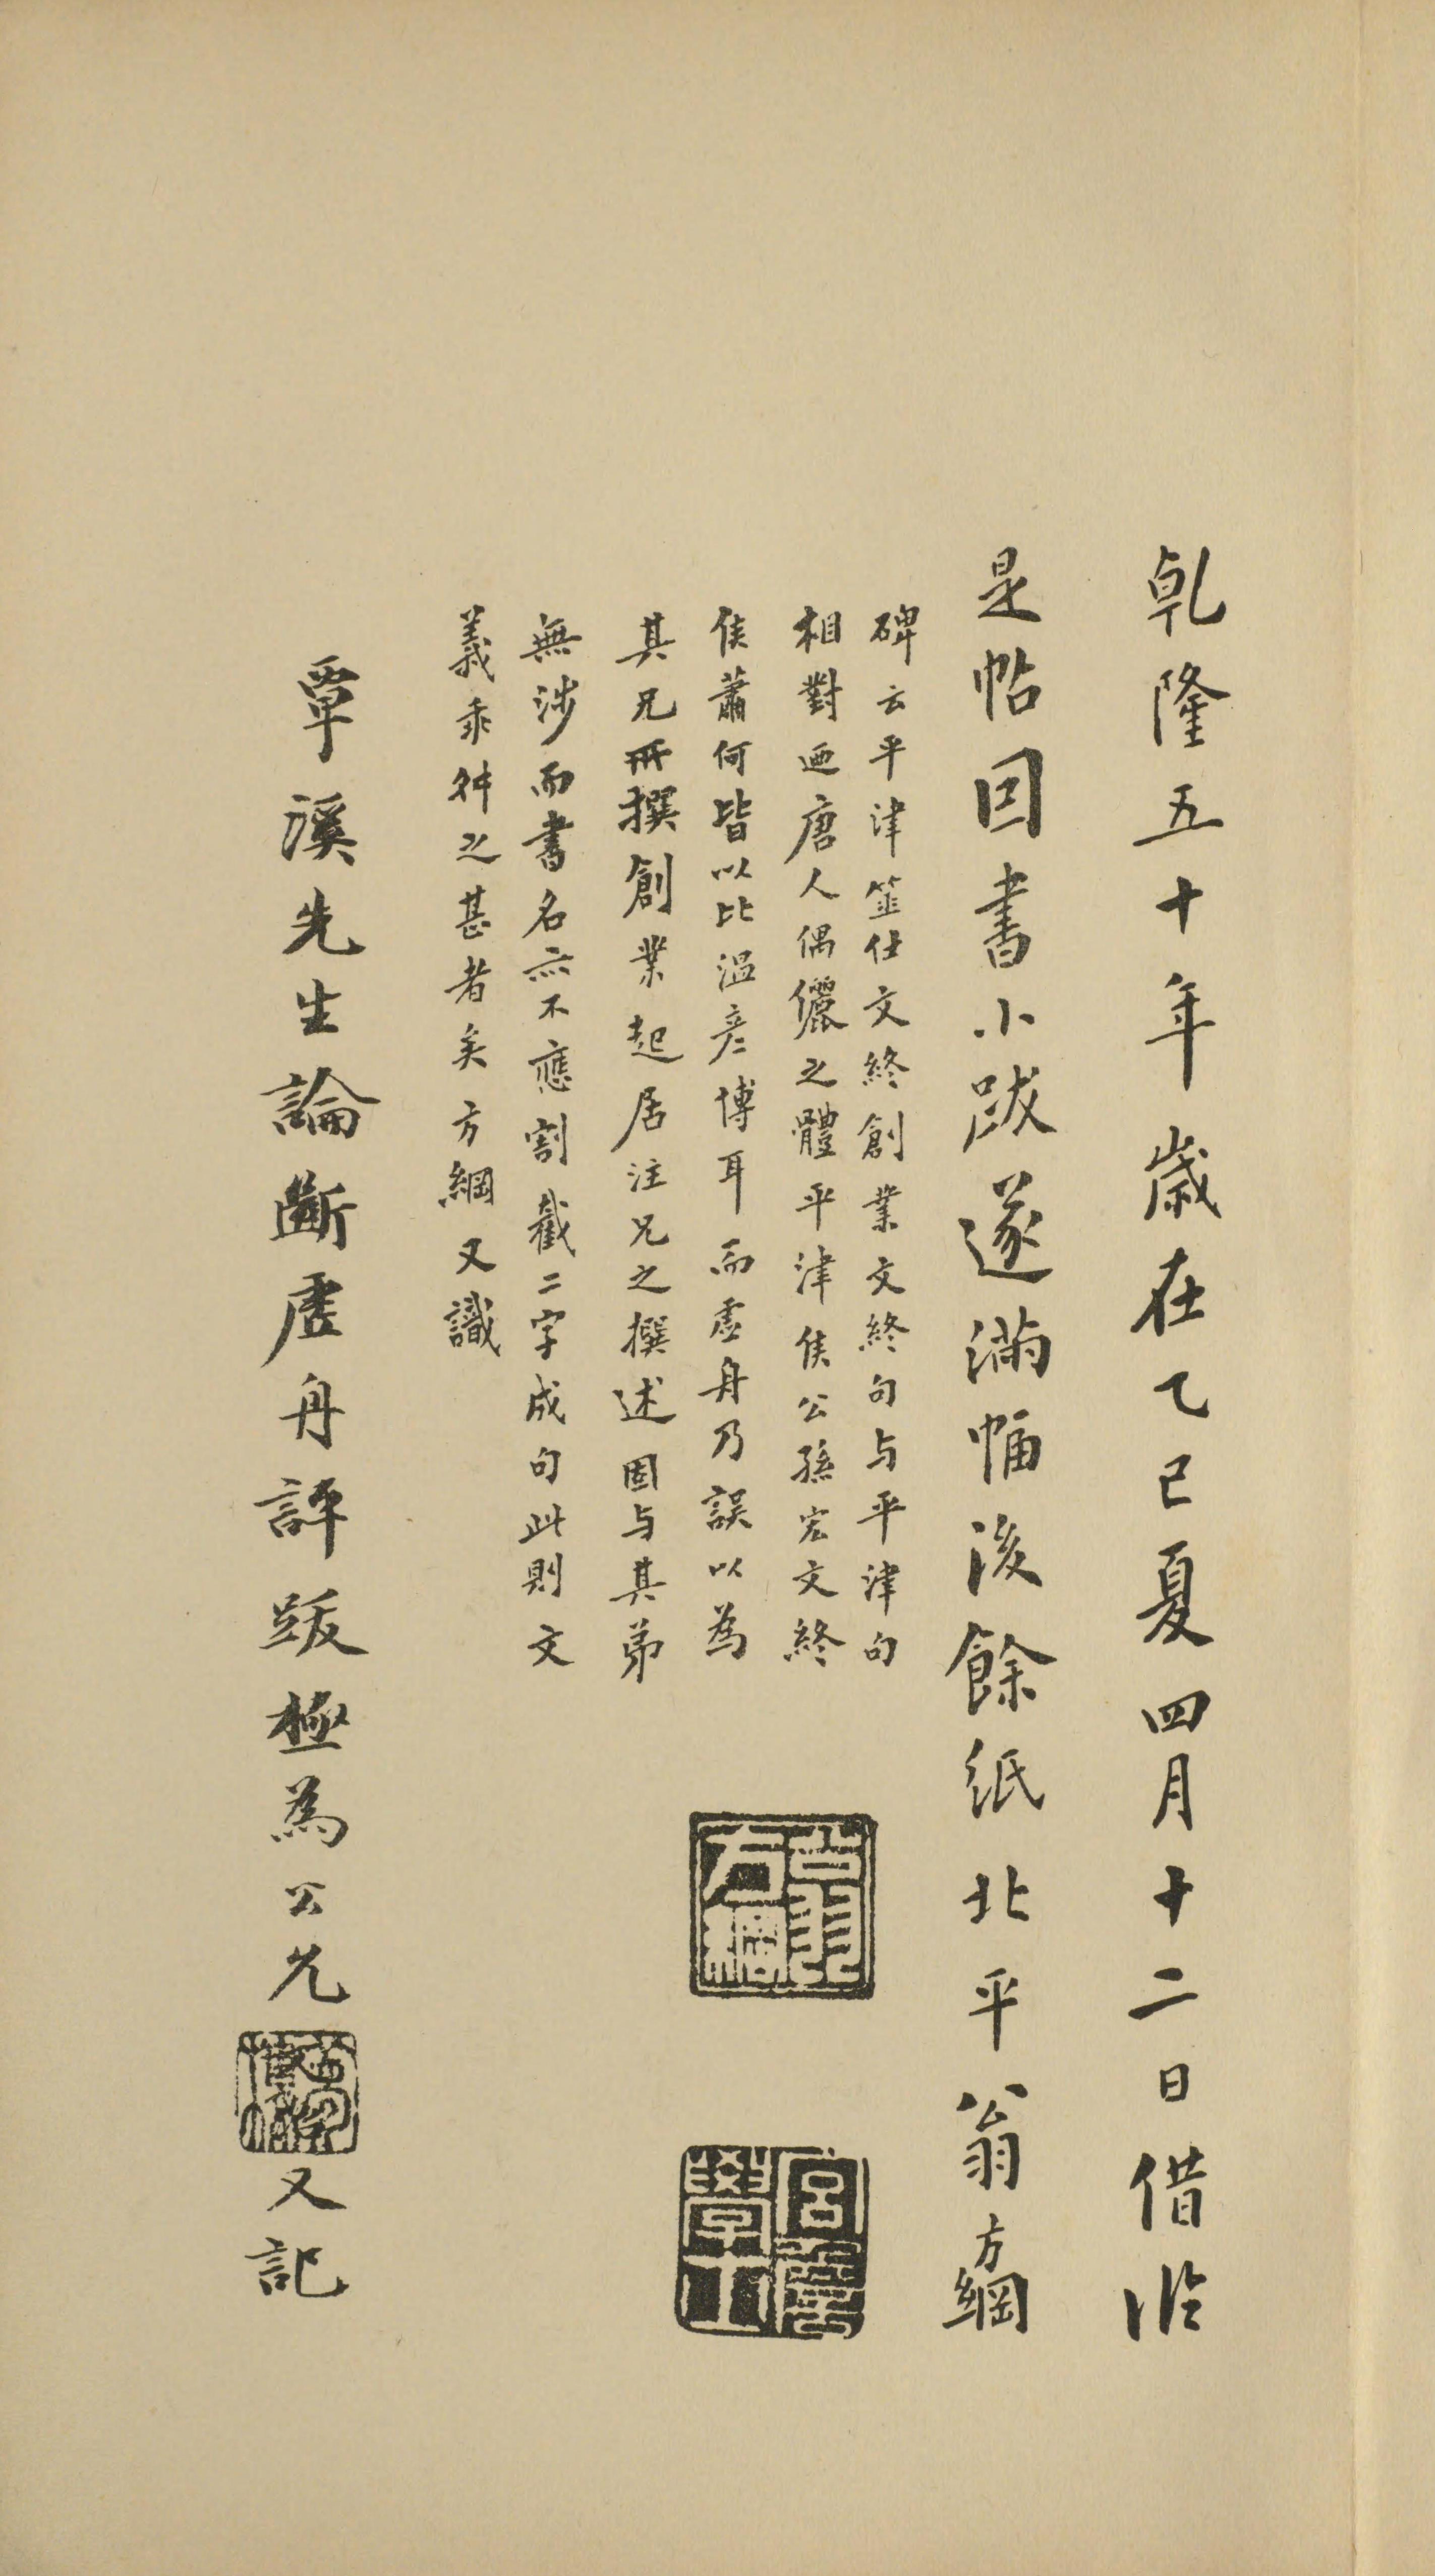 乹隆五十年歲在乙巳夏四月十二日借臨
是帖因書小跋遂滿幅後餘紙北平翁方綱
碑云平津筮仕文終創業文終句与平津句
相對迺唐人偶儷之體平津侯公孫宏文終
侯蕭何皆以比温彦博耳而虛舟乃誤以為
其兄所撰創業起居注兄之撰述固与其弟
無涉而書名亦不應割截二字成句此則文
義乖舛之甚者矣方綱又識
覃溪先生論斷虛舟評跋極為公允
又記